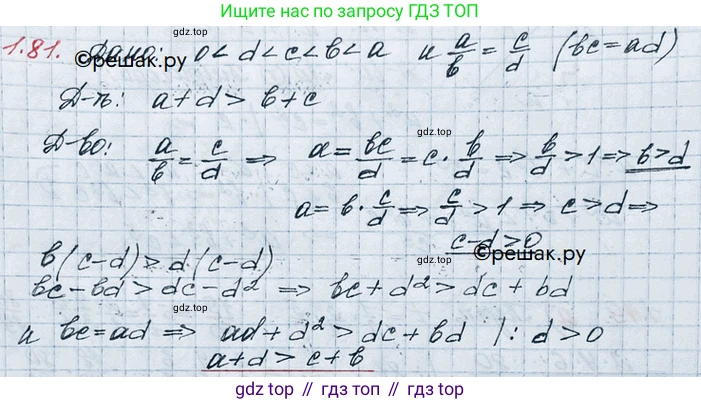 Ищите нас по запросу ГДЗ ТОП
1.81. Дано: 0 < d < c < b < a и a/b = c/d (bc = ad)
©решак.ру
gdz.top
Д-ть: a + d > b + c
gdz.top
Д-во: a/b = c/d ⇒ a = bc/d = c · b/d ⇒ b/d > 1 ⇒ b > d
a = b · c/d ⇒ c/d > 1 ⇒ c > d ⇒
c - d > 0
gdz.top
©решак.ру
b(c-d) > d(c-d)
bc - bd > dc - d² ⇒ bc + d² > dc + bd
gdz.top
и bc = ad ⇒ ad + d² > dc + bd /: d > 0
a + d > c + b
gdz top // гдз топ // gdz.top